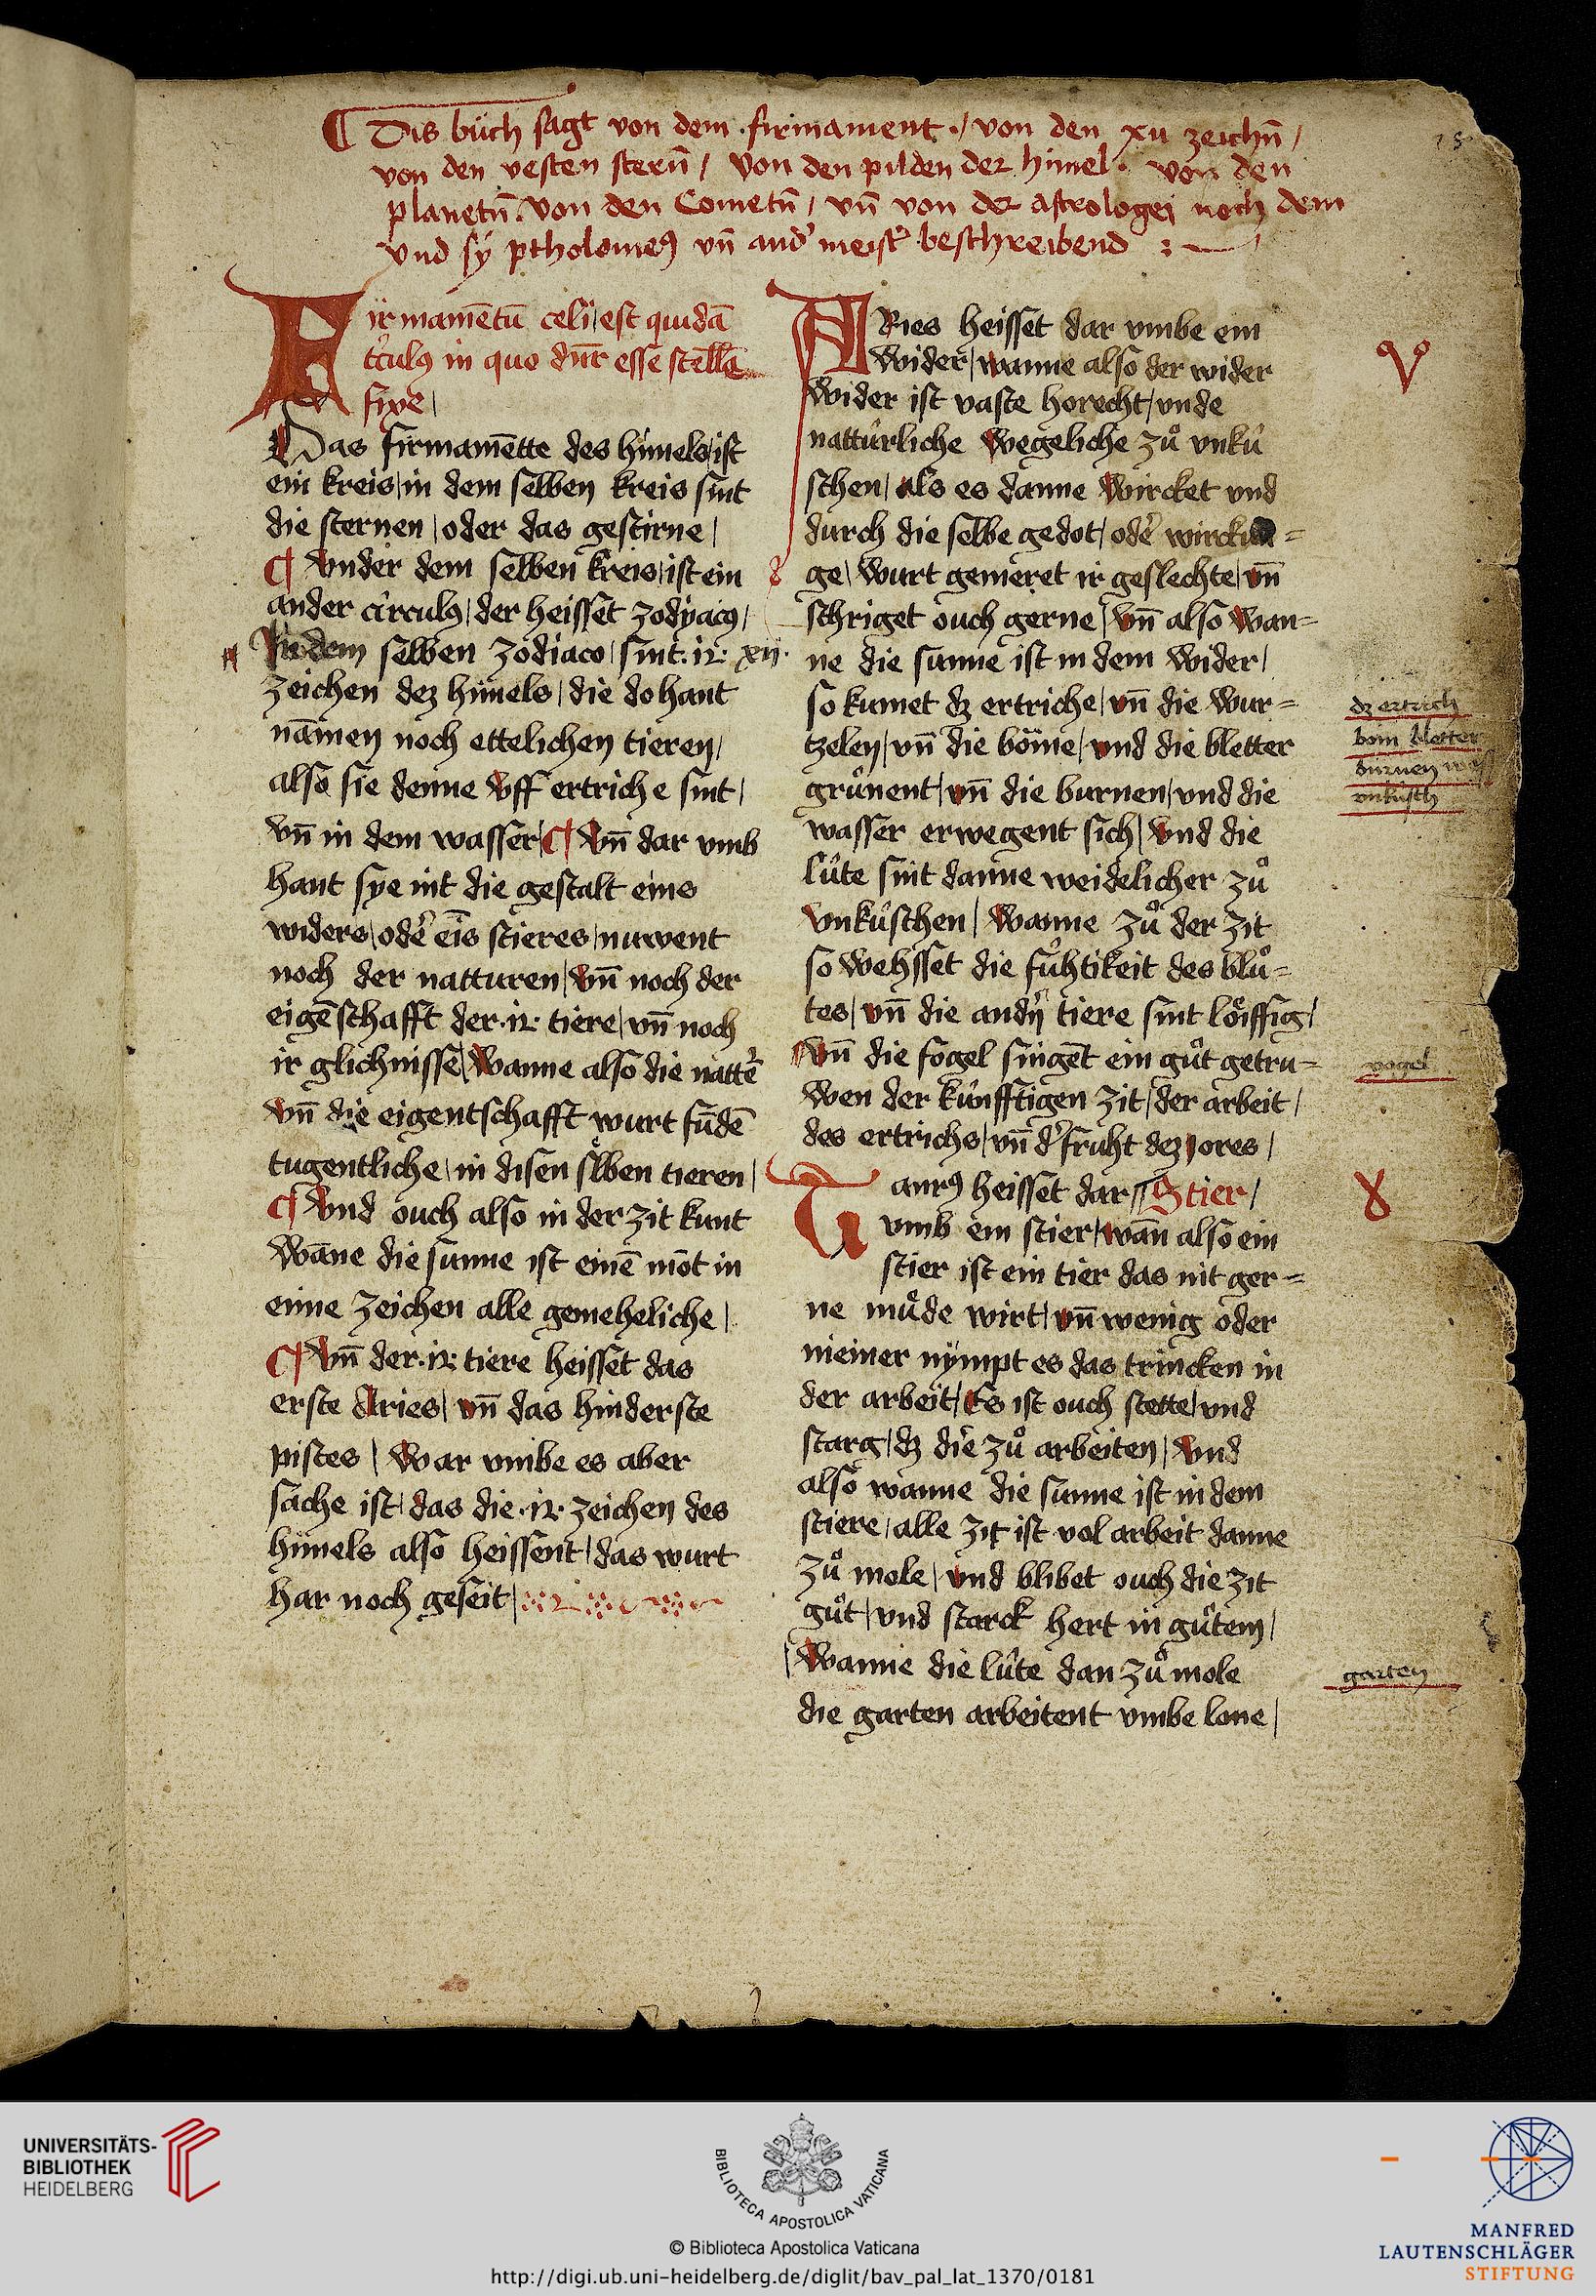 ¶ Dis bu̍ch sagt von dem · firmament ·/ von den xii zeichn̄ /
von den vesten stern̄ / Von den pilden der himel · von den
planetn̄ · Von den Cometn̄ / vn̄ von der astrologei noch dem
vnd sÿ ptholomeꝰ vn̄ and' meist' beschreibend :
Firmamētū celi / est quidā
c'culꝰ in quo dn̄r esse stelle
fixe /
Das firmamētte des himels / ist
ein kreis / in dem selben kreis sint
die sternen / oder das gestirne /
¶ Vnder dem selben kreis / ist ein
ander circulꝰ / der heisset zodÿacꝰ /
In dem selben zodiaco / sint · ir · xij ·
zeichen dez himels / die do hant
nāmen noch ettelichen tieren /
also sie denne vff ertriche sint /
vn̄ in dem wasser / ¶ Vn̄ dar vmb
hant sye nit die gestalt eins
widers / oder eīs stieres / nuwent
noch der natturen / vn̄ noch der
eigēschafft der · ir · tiere / vn̄ noch
ir glichnisse / Wanne also die natt'
vn̄ die eigentschafft wurt fūdē
tugentliche / in disen selben tieren /
¶ Vnd ouch also in der zit kunt
Wāne die sunne ist einē mōt in
eime zeichen alle gemeheliche /
¶ Vn̄ der · ir · tiere heisset das
erste Aries / vn̄ das hinderste
pistes / War vmbe es aber
sache ist / das die · ir · zeichen des
himels also heissent / das wurt
har noch geseit /
ARies heisset dar vmbe ein
Wider / wanne also der wider
Wider ist vaste horecht / vnde
nattu̍rliche Wegeliche zů vnku̍
schen / als es danne Wircket vnd
durch die selbe gedot / oder wircku =
ge / Wurt gemeret ir geslechte / vn̄
schriget ouch gerne / Vn̄ also Wan =
ne die sunne ist in dem Wider /
so kumet dz ertriche / vn̄ die Wur =
tzelen / vn̄ die bo̍me / vnd die bletter
grůnent / vn̄ die burnen / vnd die
wasser erwegent sich / Vnd die
lu̍te sint danne weidelicher zů
Vnku̍schen / Wanne zů der zit
so Wehsset die fůhtikeit des blů =
tes / vn̄ die andn̄ tiere sint lo̍iffig /
Vn̄ die fogel singēt ein gůt getru =
Wen der ku̍nfftigen zit / der arbeit /
des ertrichs / vn̄ d' fruht dez jores /
Taurꝰ heisset dar / Stier /
vmb ein stier / wān also ein
stier ist ein tier das nit ger =
ne můde wirt / vn̄ wenig oder
niemer nympt es das trincken in
der arbeit / Es ist ouch stette / vnd
starg / dz die zů arbeiten / Vnd
also wanne die sunne ist in dem
stiere / alle zit ist vol arbeit danne
zů mole / vnd blibet ouch die zit
gůt / vnd starck hert in gůtem /
Wanne die lu̍te dan zů mole
die garten arbeitent vmbe lone /
♈
dz ertrich
bom bletter
burnen
vnkusch
vogel
♉
garten
UNIVERSITÄTS-
BIBLIOTHEK
HEIDELBERG
BIBLIOTECA APOSTOLICA VATICANA
© Biblioteca Apostolica Vaticana
http://digi.ub.uni-heidelberg.de/diglit/bav_pal_lat_1370/0181
MANFRED
LAUTENSCHLÄGER
STIFTUNG